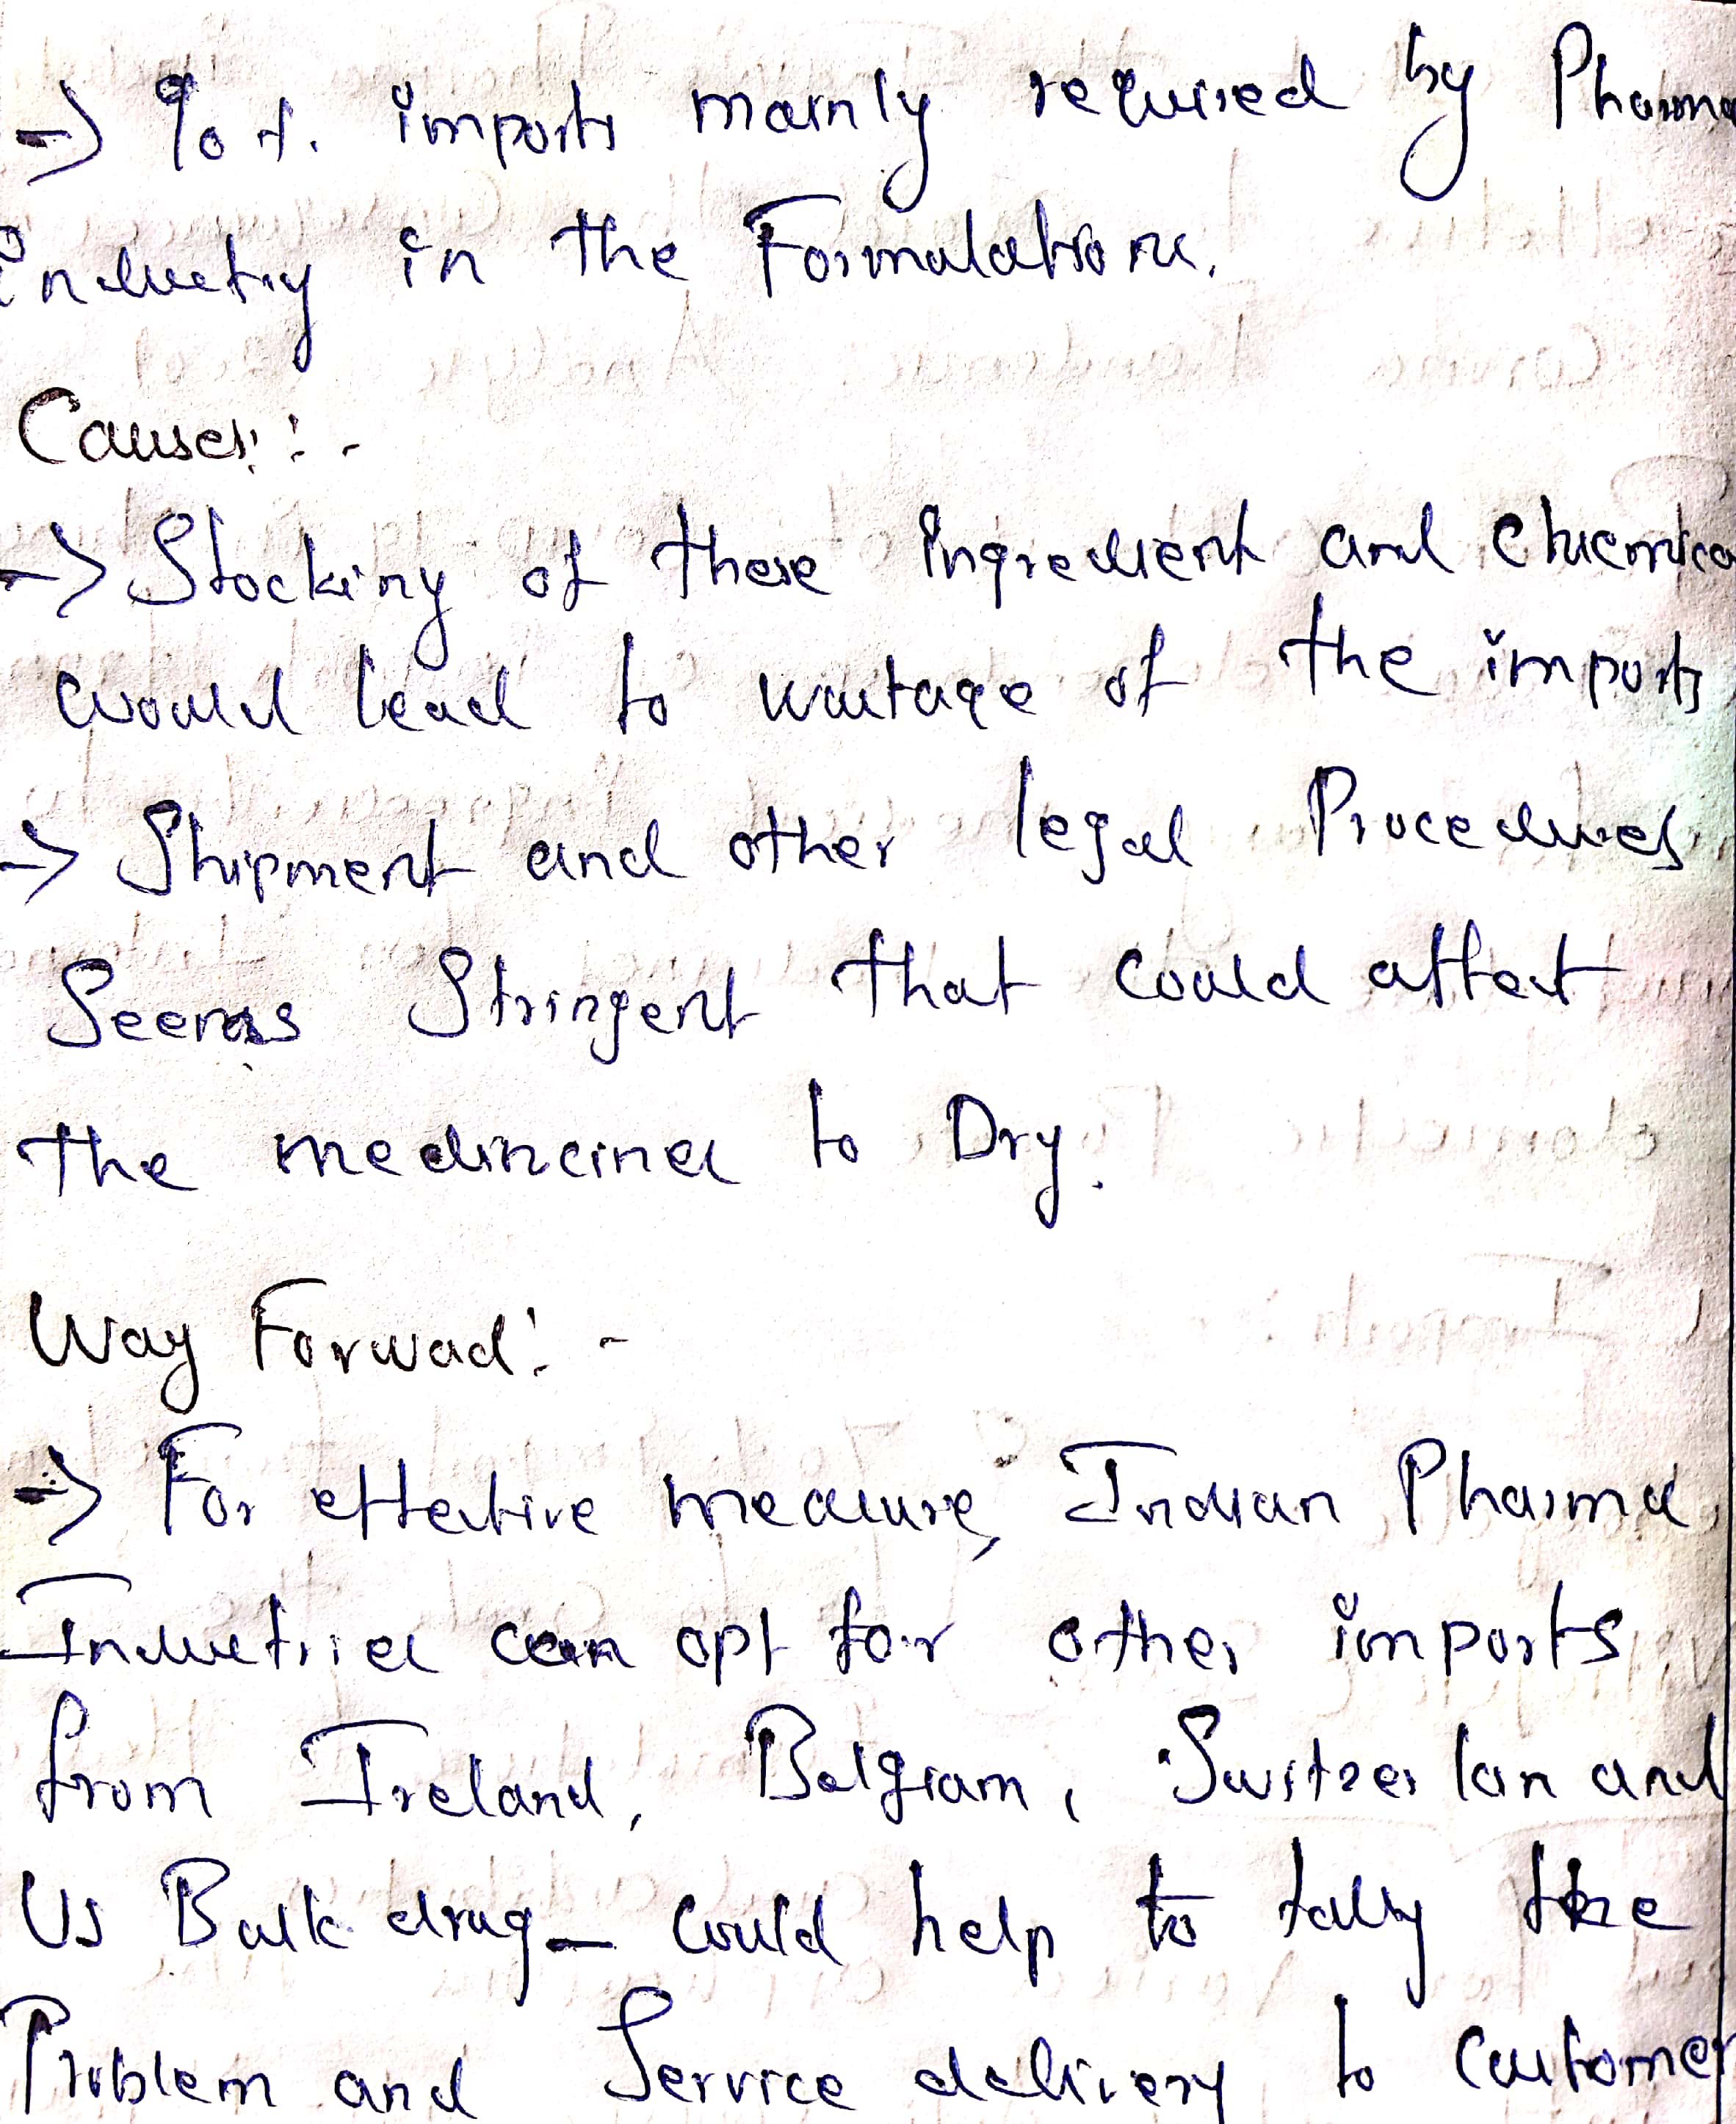 → 90 %. imports mainly required by Pharma
industry in the Formulations.
Causes:-
→ Stocking of these Ingredient and Chemica
would lead to wastage of the imports
→ Shipment and other legal Procedures
Seems Stringent that could affect
the medincines to Dry.
Way Forwad:-
→ For effective measure, Indian Pharma
Industries can opt for other imports
from Ireland, Belgium, Switzerlan and
US Bulk drug- could help to tally the
Problem and Service delivery to customer